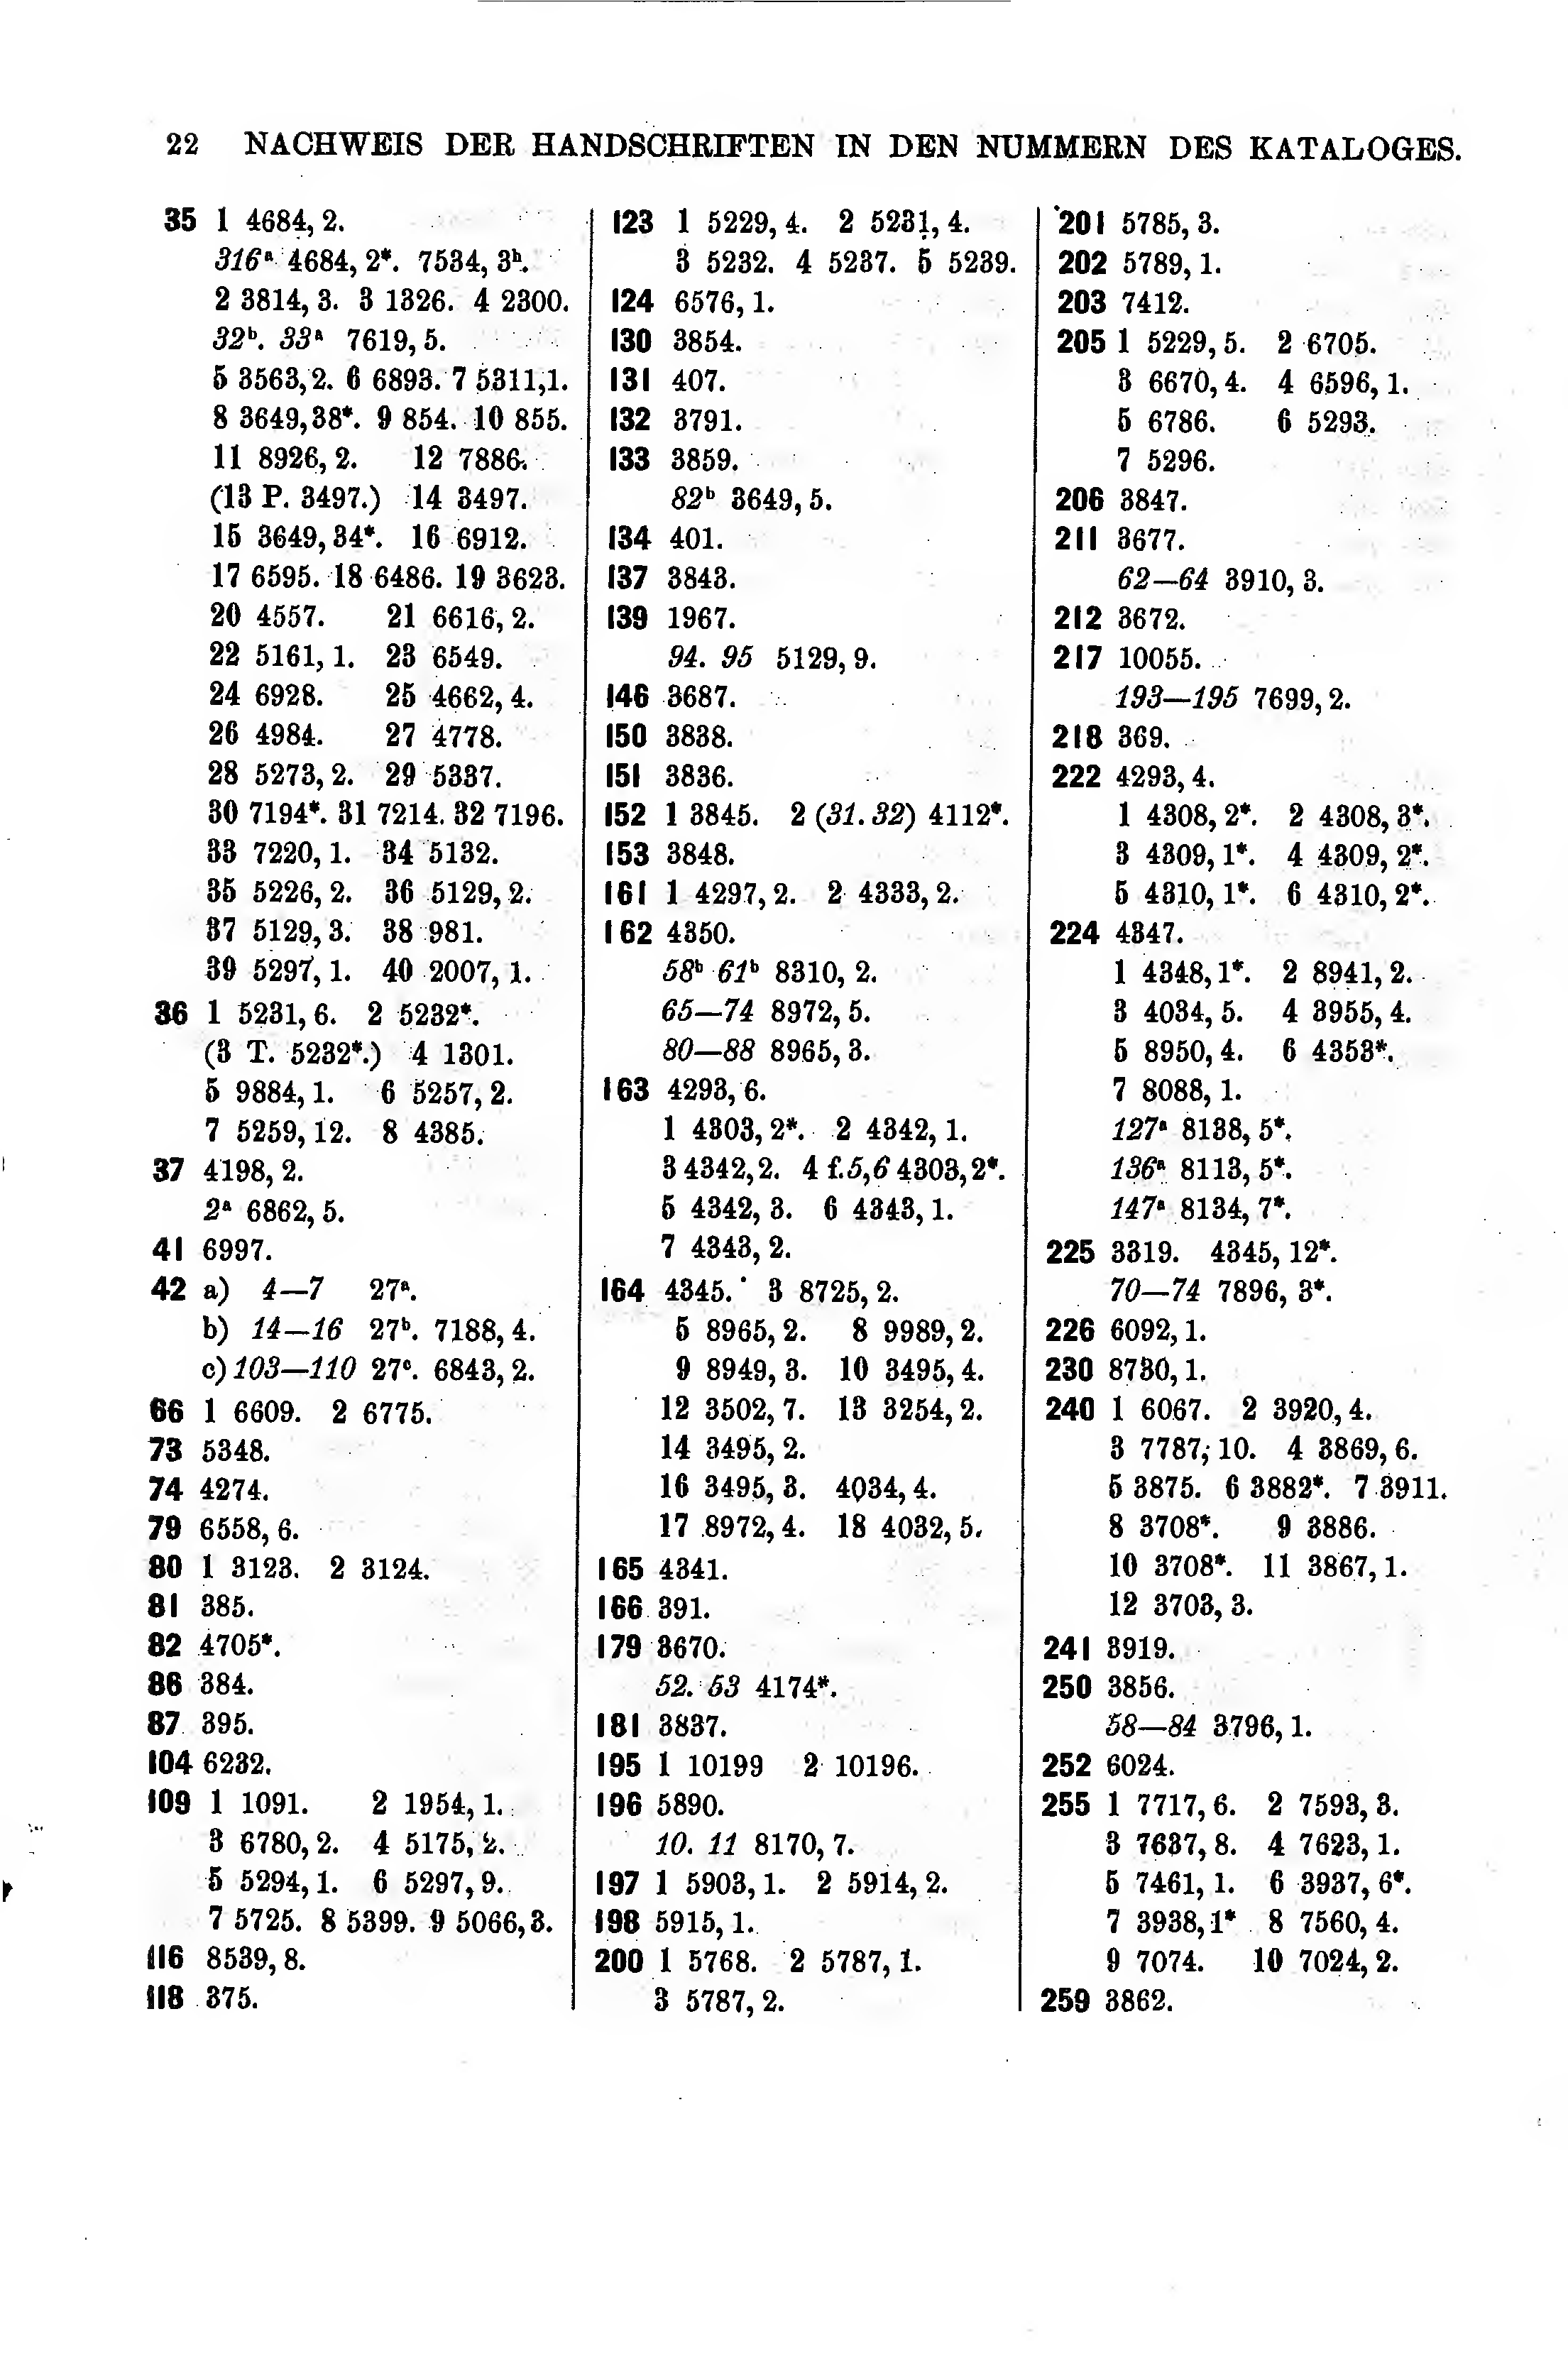 22 NACHWEIS DER HANDSCHRIFTEN IN DEN NUMMERN DES KATALOGES.
35 1 4684, 2.
316ᵃ 4684, 2*. 7534, 3ʰ.
2 3814, 3. 3 1326. 4 2300.
32ᵇ. 33ᵃ 7619, 5.
5 3563, 2. 6 6893. 7 5311, 1.
8 3649, 38*. 9 854. 10 855.
11 8926, 2. 12 7886.
(13 P. 3497.) 14 3497.
15 3649, 34*. 16 6912.
17 6595. 18 6486. 19 3623.
20 4557. 21 6616, 2.
22 5161, 1. 23 6549.
24 6928. 25 4662, 4.
26 4984. 27 4778.
28 5273, 2. 29 5337.
30 7194*. 31 7214. 32 7196.
33 7220, 1. 34 5132.
35 5226, 2. 36 5129, 2.
37 5129, 3. 38 981.
39 5297, 1. 40 2007, 1.
36 1 5231, 6. 2 5232*.
(3 T. 5232*.) 4 1301.
5 9884, 1. 6 5257, 2.
7 5259, 12. 8 4385.
37 4198, 2.
2ᵃ 6862, 5.
41 6997.
42 a) 4—7 27ᵃ.
b) 14—16 27ᵇ. 7188, 4.
c) 103—110 27ᶜ. 6843, 2.
66 1 6609. 2 6775.
73 5348.
74 4274.
79 6558, 6.
80 1 3123. 2 3124.
81 385.
82 4705*.
86 384.
87 395.
104 6232.
109 1 1091. 2 1954, 1.
3 6780, 2. 4 5175, 2.
5 5294, 1. 6 5297, 9.
7 5725. 8 5399. 9 5066, 3.
116 8539, 8.
118 375.
123 1 5229, 4. 2 5231, 4.
3 5232. 4 5237. 5 5239.
124 6576, 1.
130 3854.
131 407.
132 3791.
133 3859.
82ᵇ 3649, 5.
134 401.
137 3843.
139 1967.
94. 95 5129, 9.
146 3687.
150 3838.
151 3836.
152 1 3845. 2 (31. 32) 4112*.
153 3848.
161 1 4297, 2. 2 4333, 2.
162 4350.
58ᵇ 61ᵇ 8310, 2.
65—74 8972, 5.
80—88 8965, 3.
163 4293, 6.
1 4303, 2*. 2 4342, 1.
3 4342, 2. 4 f. 5, 6 4303, 2*.
5 4342, 3. 6 4343, 1.
7 4343, 2.
164 4345. 3 8725, 2.
5 8965, 2. 8 9989, 2.
9 8949, 3. 10 3495, 4.
12 3502, 7. 13 3254, 2.
14 3495, 2.
16 3495, 3. 4034, 4.
17 8972, 4. 18 4032, 5.
165 4341.
166 391.
179 3670.
52. 53 4174*.
181 3837.
195 1 10199 2 10196.
196 5890.
10. 11 8170, 7.
197 1 5903, 1. 2 5914, 2.
198 5915, 1.
200 1 5768. 2 5787, 1.
3 5787, 2.
201 5785, 3.
202 5789, 1.
203 7412.
205 1 5229, 5. 2 6705.
3 6670, 4. 4 6596, 1.
5 6786. 6 5293.
7 5296.
206 3847.
211 3677.
62—64 3910, 3.
212 3672.
217 10055.
193—195 7699, 2.
218 369.
222 4293, 4.
1 4308, 2*. 2 4308, 3*.
3 4309, 1*. 4 4309, 2*.
5 4310, 1*. 6 4310, 2*.
224 4347.
1 4348, 1*. 2 8941, 2.
3 4034, 5. 4 3955, 4.
5 8950, 4. 6 4353*.
7 8088, 1.
127ᵃ 8138, 5*.
136ᵃ 8113, 5*.
147ᵃ 8134, 7*.
225 3319. 4345, 12*.
70—74 7896, 3*.
226 6092, 1.
230 8730, 1.
240 1 6067. 2 3920, 4.
3 7787, 10. 4 3869, 6.
5 3875. 6 3882*. 7 3911.
8 3708*. 9 3886.
10 3708*. 11 3867, 1.
12 3703, 3.
241 3919.
250 3856.
58—84 3796, 1.
252 6024.
255 1 7717, 6. 2 7593, 3.
3 7637, 8. 4 7623, 1.
5 7461, 1. 6 3937, 6*.
7 3938, 1* 8 7560, 4.
9 7074. 10 7024, 2.
259 3862.